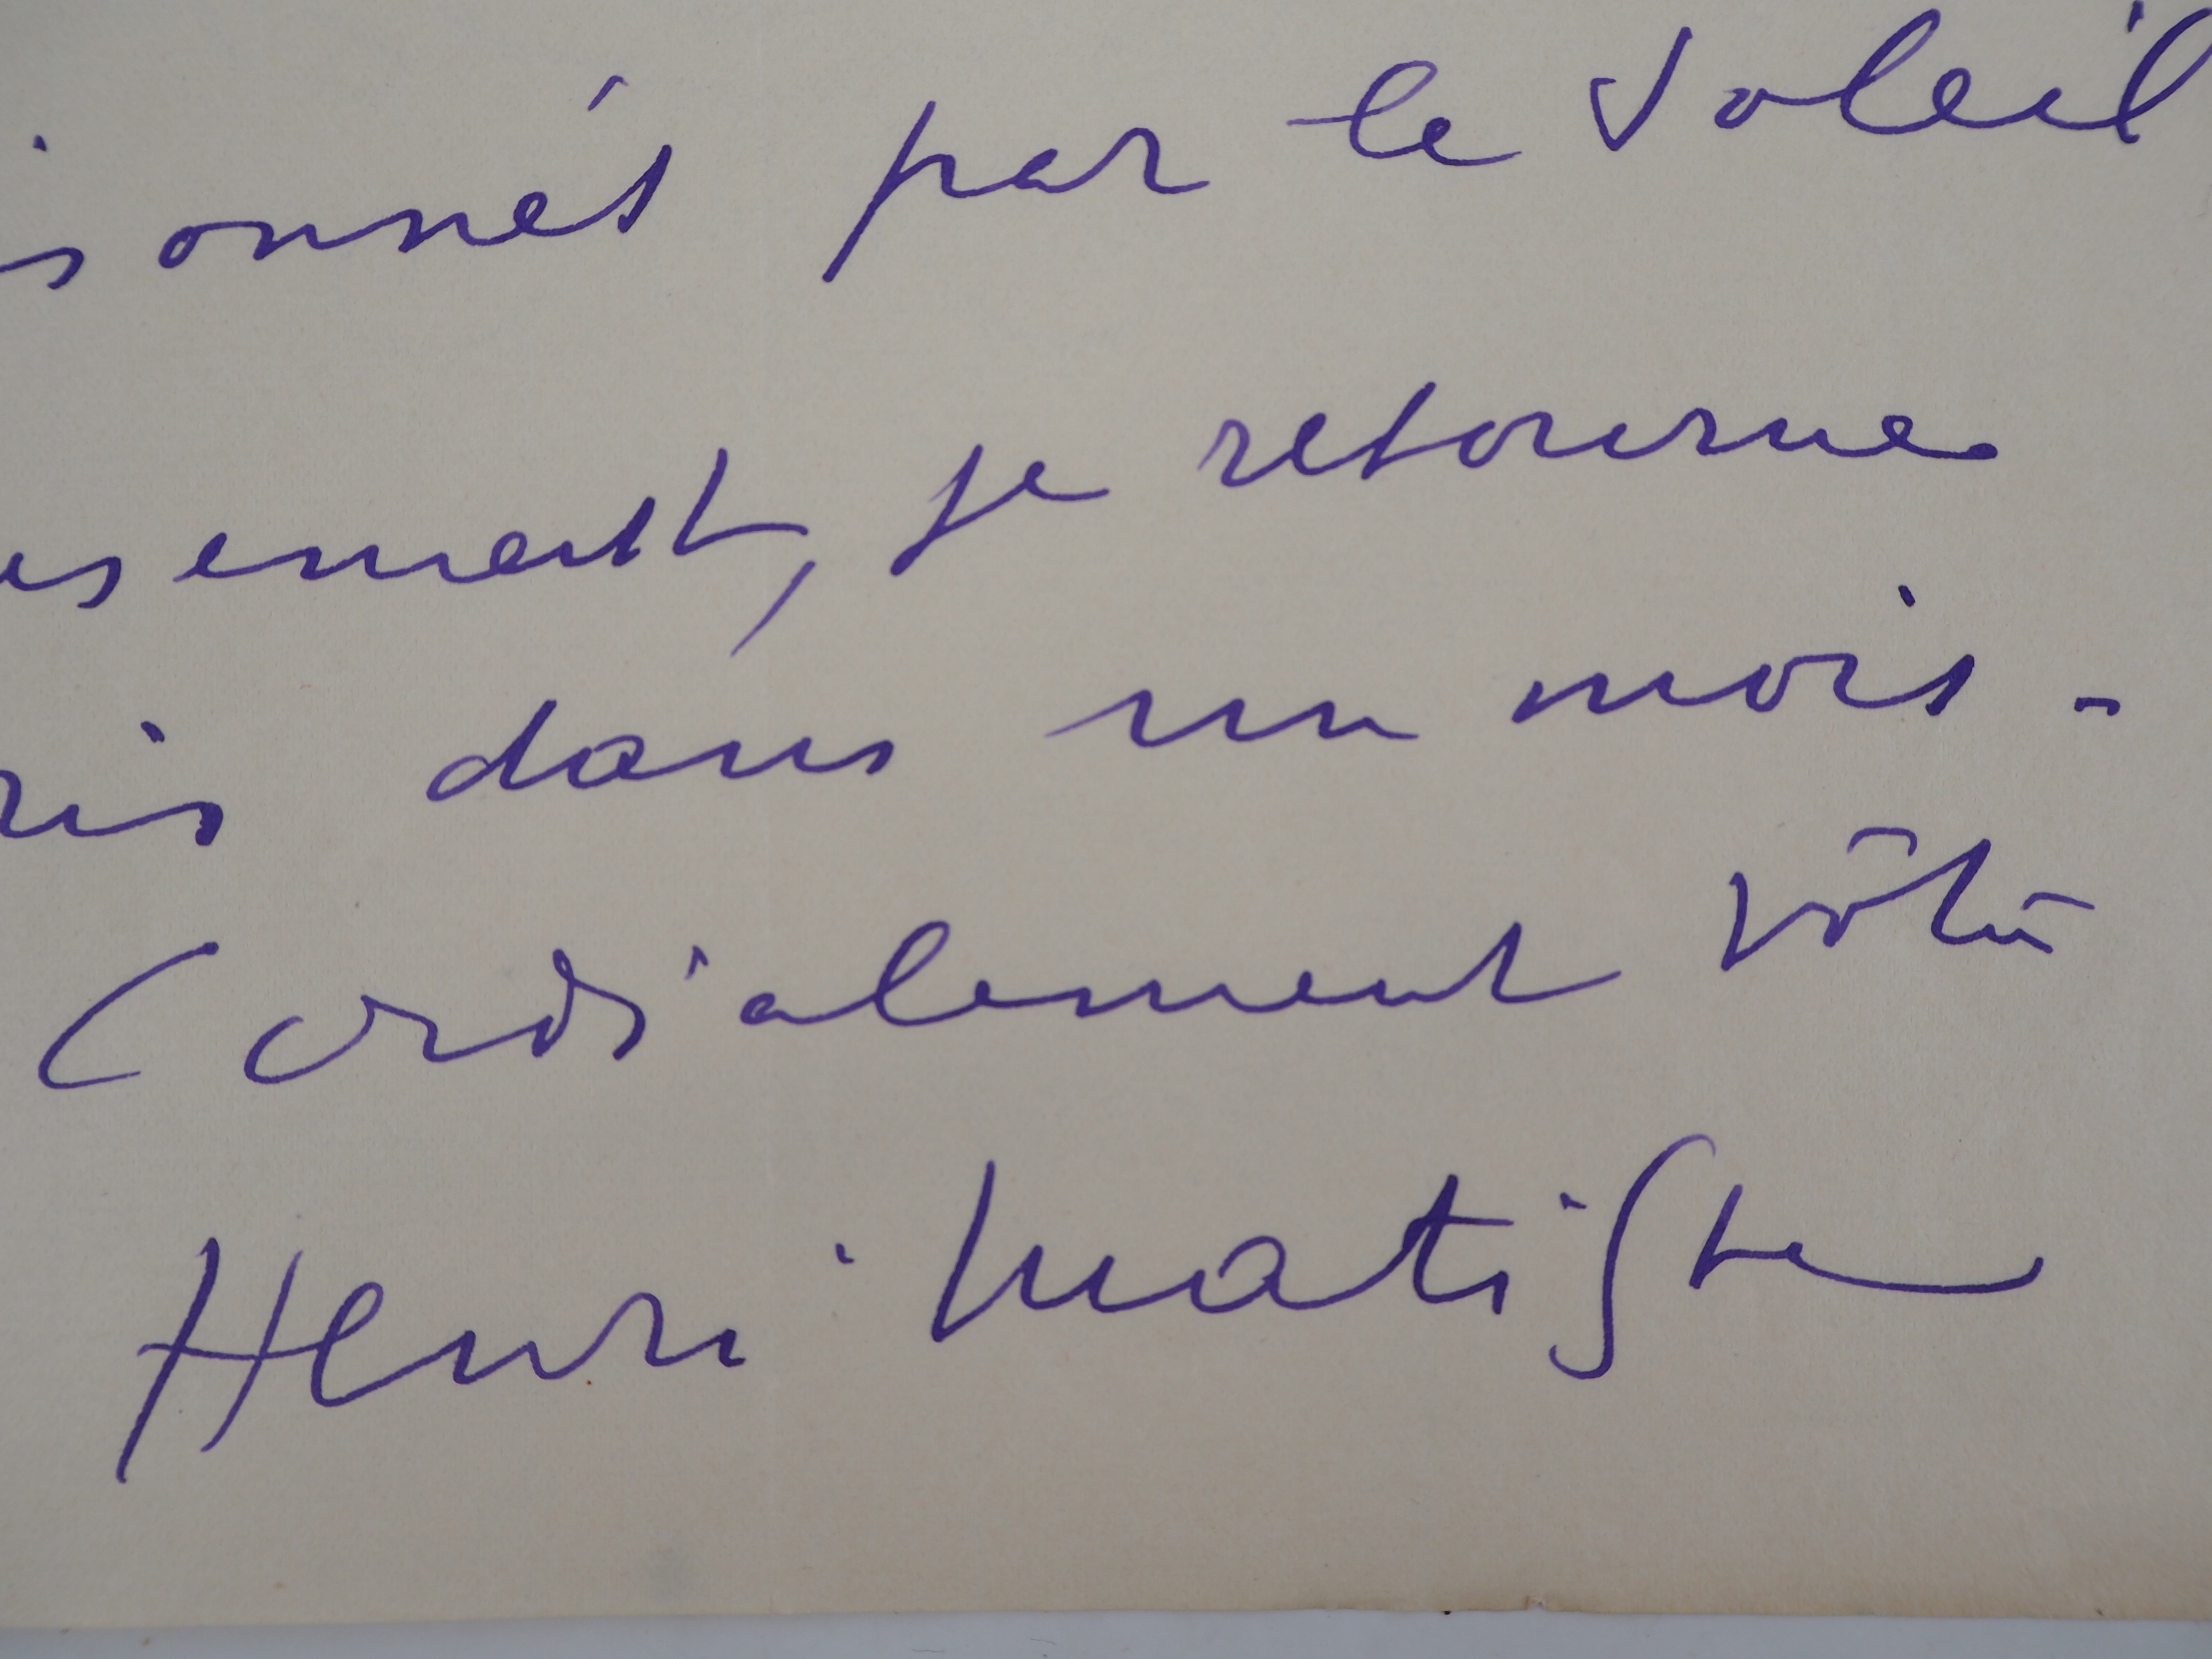 isonnés par le soleil
esement, je retourne
ris dans un mois -
Cordialement vôtre
Henri Matisse